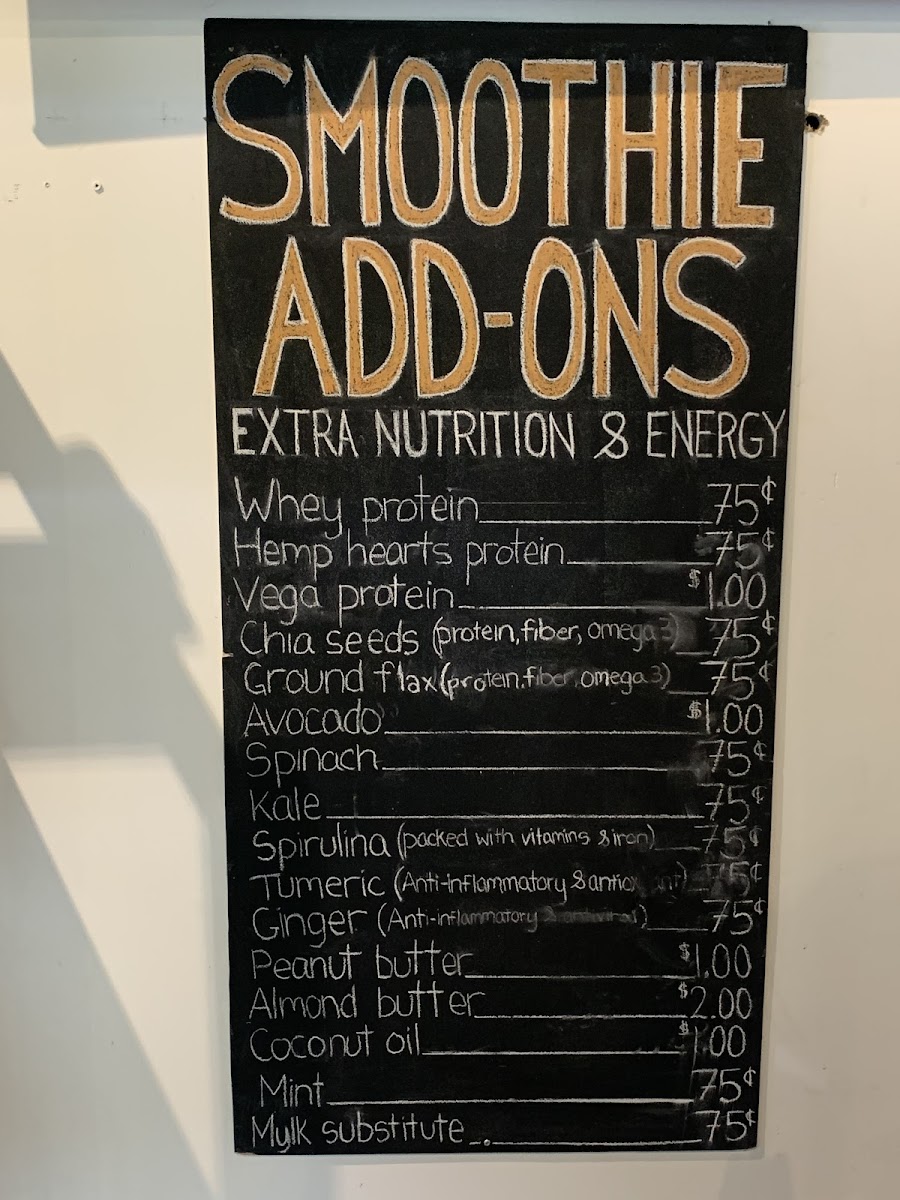 SMOOTHIE
ADD-ONS
EXTRA NUTRITION & ENERGY
Whey protein 75¢
Hemp hearts protein 75¢
Vega protein $1.00
Chia seeds (protein, fiber, omega 3) 75¢
Ground flax (protein, fiber, omega 3) 75¢
Avocado $1.00
Spinach 75¢
Kale 75¢
Spirulina (packed with vitamins & iron) 75¢
Tumeric (Anti-inflammatory & 75¢
Ginger (Anti-inflammatory & antiviral) 75¢
Peanut butter $1.00
Almond butter $2.00
Coconut oil $1.00
Mint 75¢
Mylk substitute 75¢